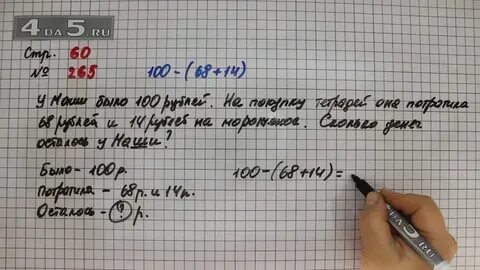 4DA5.RU
Стр. 60
№ 265 100-(68+14)
У Маши было 100 рублей. На покупку тетрадей она потратила
68 рублей и 14 рублей на мороженое. Сколько денег
осталось у Маши?
Было - 100р. 100-(68+14)=
Потратила - 68р. и 14р.
Осталось - ? р.
4DA5.RU